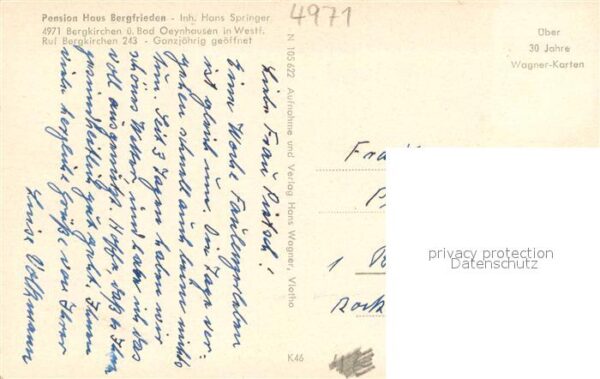 Pension Haus Bergfrieden - Inh. Hans Springer
4971 Bergkirchen ü. Bad Oeynhausen in Westf.
Ruf Bergkirchen 243 - Ganzjährig geöffnet
4971
Über
30 Jahre
Wagner-Karten
Liebe Frau Pietsch!
Eine Woche Faulenzerleben
ist gleich um. Die Tage ver-
gehen schnell auch beim nichts
tun. Seit 3 Tagen haben wir
schönes Wetter und habe ich das
voll ausgenützt. Hoffe, daß es Ihnen
gesundheitlich gut geht. Ihnen
viele herzliche Grüße von Ihrer
Luise Volkmann
N 105 622 Aufnahme und Verlag Hans Wagner, Vlotho
K46
1
privacy protection
Datenschutz